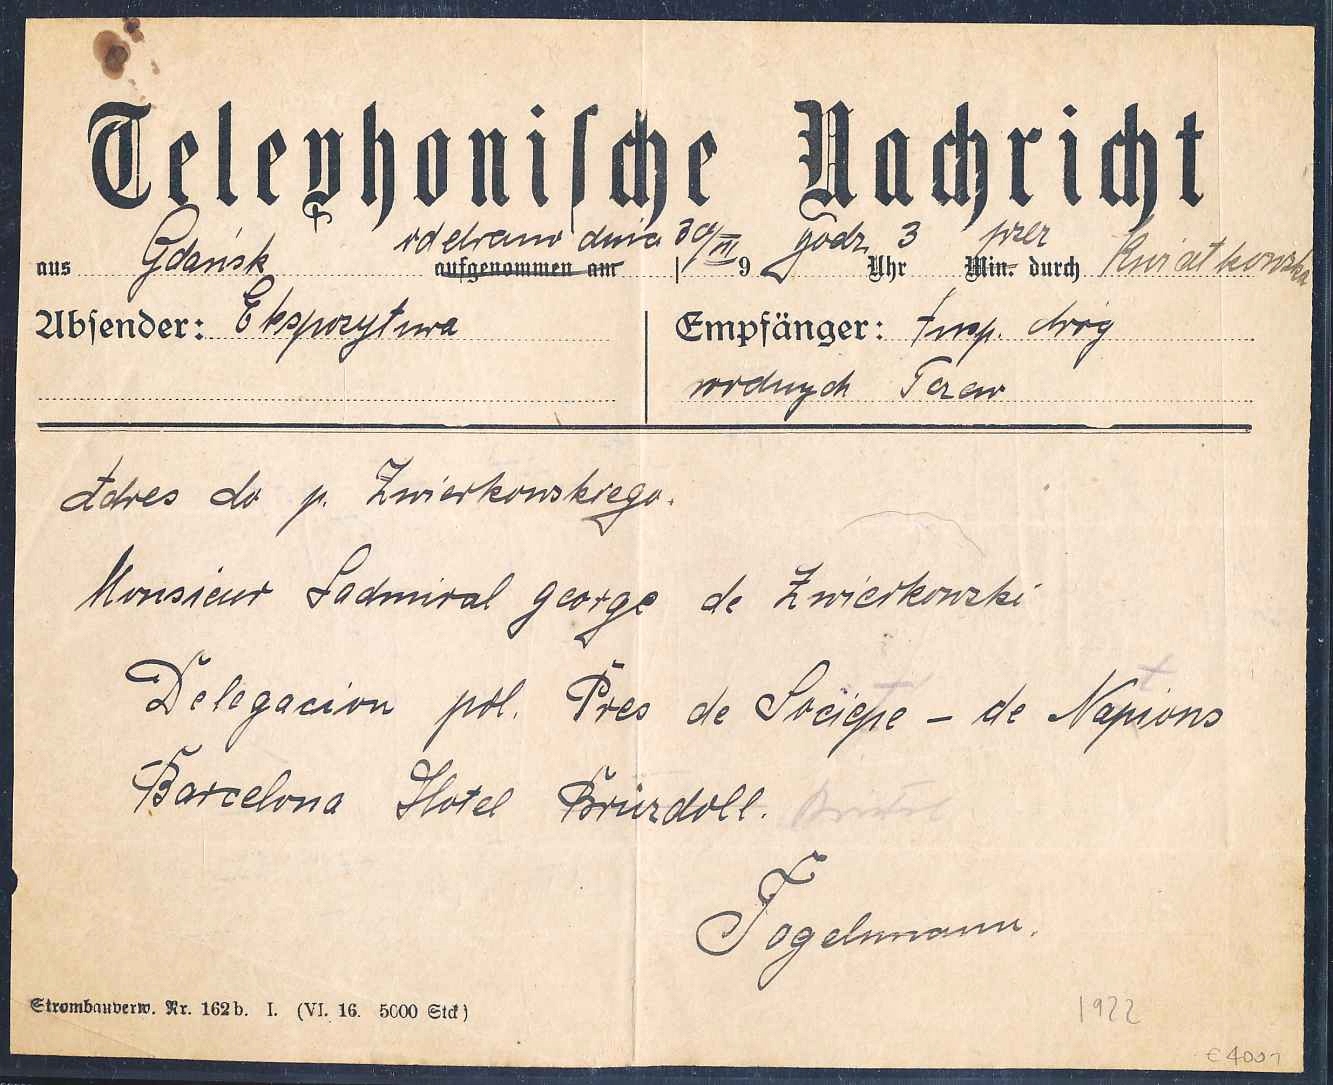 Telephonische Nachricht
aus Gdańsk odebrano dnia 30/III godz. 3 przez Kwiatkowska
aufgenommen am 19 Uhr Min. durch
Absender: Ekspozytura
Empfänger: Insp. dróg
wodnych Tczew
Adres do p. Zwierkowskiego.
Monsieur Ladmiral George de Zwierkowski
Delegacion pol. Pres de Sociepe - de Napions
Barcelona Hotel Brüzdoll. Bristol
Fogelmann.
Strombauverw. Nr. 162b. I. (VI. 16. 5000 Stck)
1922